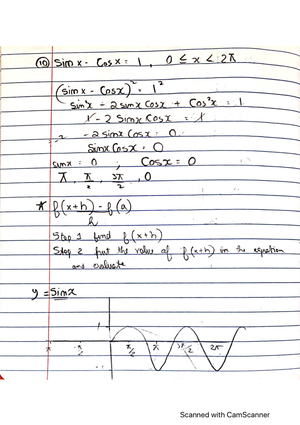 (10) Sin x - Cos x = 1 , 0 ≤ x < 2π
(sin x - Cosx)² = 1²
sin²x - 2 sinx Cosx + Cos²x = 1
1 - 2 Sinx Cosx = 1
- 2 Sinx Cosx = 0
Sinx Cosx = 0
Sinx = 0 , Cosx = 0
π , π/2 , 3π/2 , 0
* f(x+h) - f(a)
h
Step 1 find f(x+h)
Step 2 put the value of f(x+h) in the equation
and evaluate
y = Sinx
1
-π -π/2 π/2 π 3π/2 2π
Scanned with CamScanner